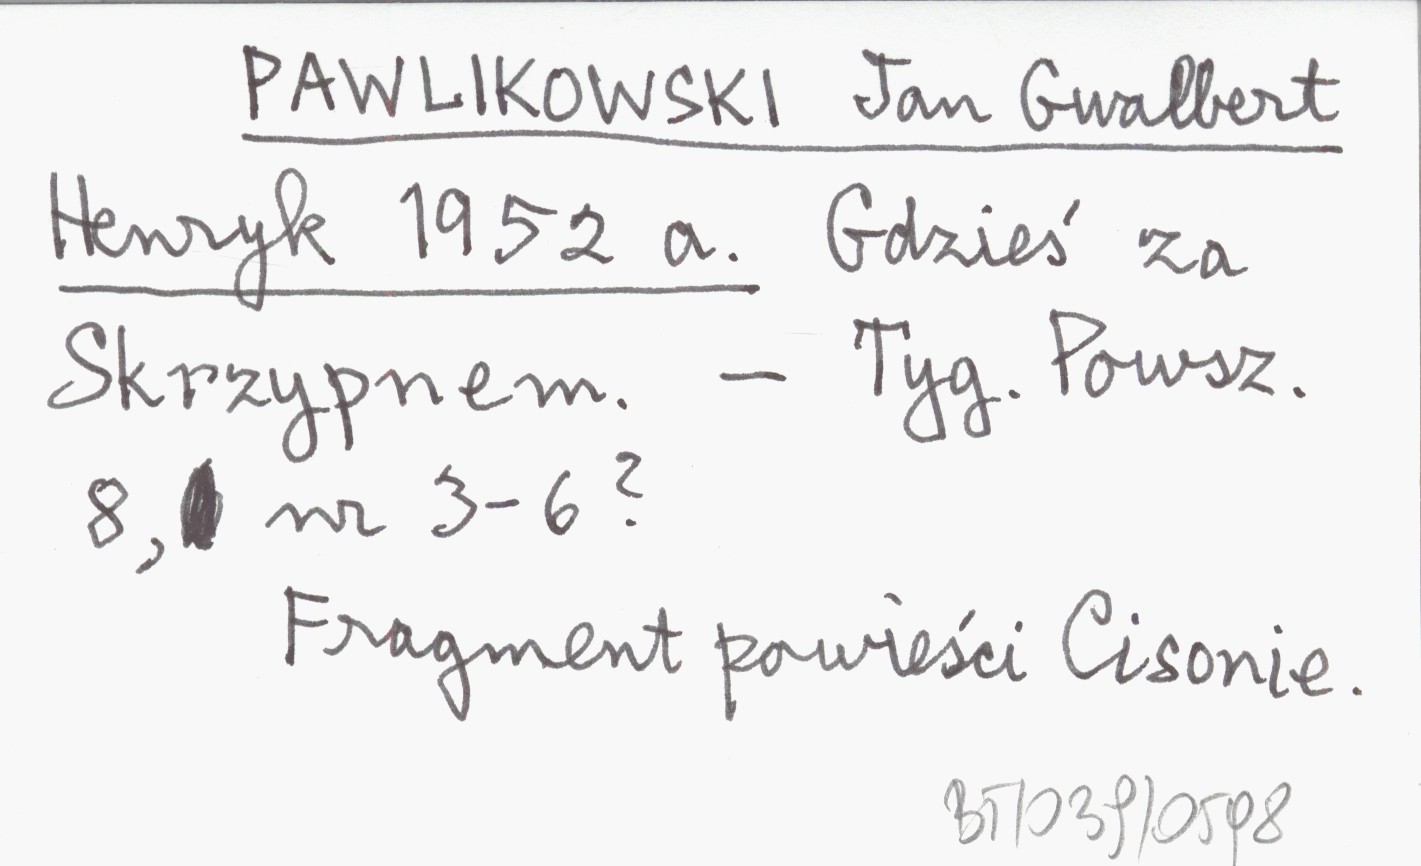 PAWLIKOWSKI Jan Gwalbert
Henryk 1952 a. Gdzieś za
Skrzypnem. – Tyg. Powsz.
8, nr 3-6?
Fragment powieści Cisonie.
BT/039/0598